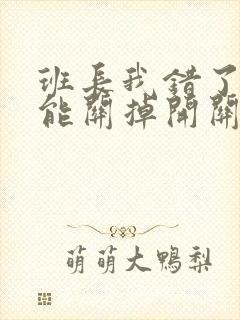 班长我错了
能關掉開關
萌萌大鴨梨